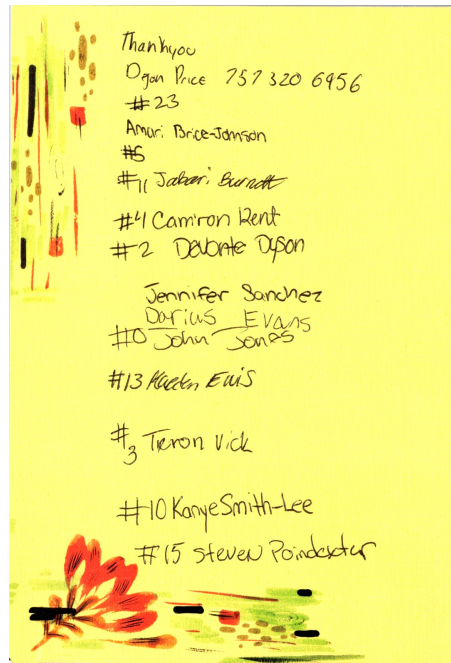 Thankyou
Dejon Price 757 320 6956
#23
Amari Brice-Johnson
#5
#11 Jabari Burnett
#4 Cam'ron Kent
#2 Devonte Dyson
Jennifer Sanchez
Darius Evans
#0 John Jones
#13 Ellis
#3 Tieron Vick
#10 Kanye Smith-Lee
#15 Steven Poindexter